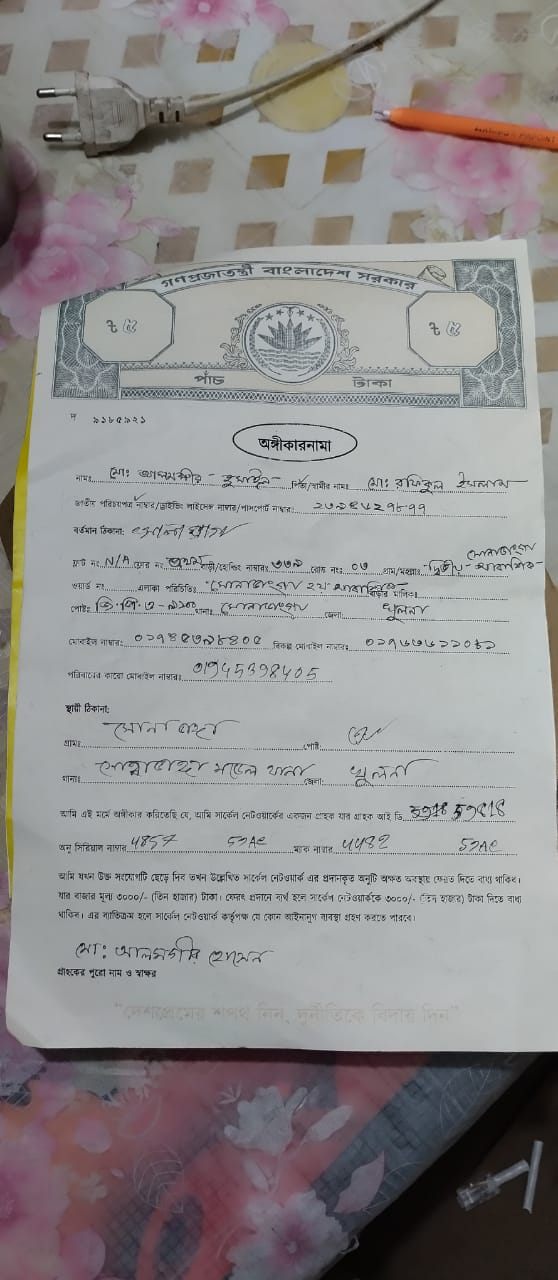 MARKER PAPONI
গণপ্রজাতন্ত্রী বাংলাদেশ সরকার
৳ ৫
৳ ৫
পাঁচ টাকা
৯১৮৫৯২১
অঙ্গীকারনামা
নামঃ মোঃ হুসাইন পিতা/স্বামীর নামঃ মোঃ রফিকুল ইসলাম
জাতীয় পরিচয়পত্র নাম্বার/ড্রাইভিং লাইসেন্স নাম্বার/পাসপোর্ট নাম্বারঃ
বর্তমান ঠিকানাঃ
ফ্লাট নং N/A ফ্লোর নং প্রথম বাড়ী/হোল্ডিং নাম্বারঃ ৩৩৯ রোড নংঃ ০৩ গ্রাম/মহল্লাঃ সোনাডাঙ্গা দ্বিতীয় আবাসিক
ওয়ার্ড নং এলাকা পরিচিতিঃ সোনাডাঙ্গা ২য় আবাসিক বাড়ীর মালিকঃ
পোষ্টঃ জি.পি.ও - ৯১০০ থানাঃ সোনাডাঙ্গা জেলাঃ খুলনা
মোবাইল নাম্বারঃ বিকল্প মোবাইল নাম্বারঃ
পরিবারের কারো মোবাইল নাম্বারঃ 01945398405
স্থায়ী ঠিকানা:
গ্রামঃ সোনাডাঙ্গা পোষ্টঃ
থানাঃ সোনাডাঙ্গা মডেল থানা জেলাঃ খুলনা
আমি এই মর্মে অঙ্গীকার করিতেছি যে, আমি সার্কেল নেটওয়ার্কের একজন গ্রাহক যার গ্রাহক আই ডি
অনু সিরিয়াল নাম্বার 4857 53AC ম্যাক নাম্বার 4482 53AC
আমি যখন উক্ত সংযোগটি ছেড়ে দিব তখন উল্লেখিত সার্কেল নেটওয়ার্ক এর প্রদানকৃত অনুটি অক্ষত অবস্থায় ফেরত দিতে বাধ্য থাকিব।
যার বাজার মূল্য ৩০০০/- (তিন হাজার) টাকা। ফেরৎ প্রদানে ব্যর্থ হলে সার্কেল নেটওয়ার্ককে ৩০০০/- (তিন হাজার) টাকা দিতে বাধ্য
থাকিব। এর ব্যতিক্রম হলে সার্কেল নেটওয়ার্ক কর্তৃপক্ষ যে কোন আইনানুগ ব্যবস্থা গ্রহণ করতে পারবে।
মো: আলমগীর হোসেন
গ্রাহকের পুরো নাম ও স্বাক্ষর
"দেশপ্রেমের শপথ নিন, দুর্নীতিকে বিদায় দিন"